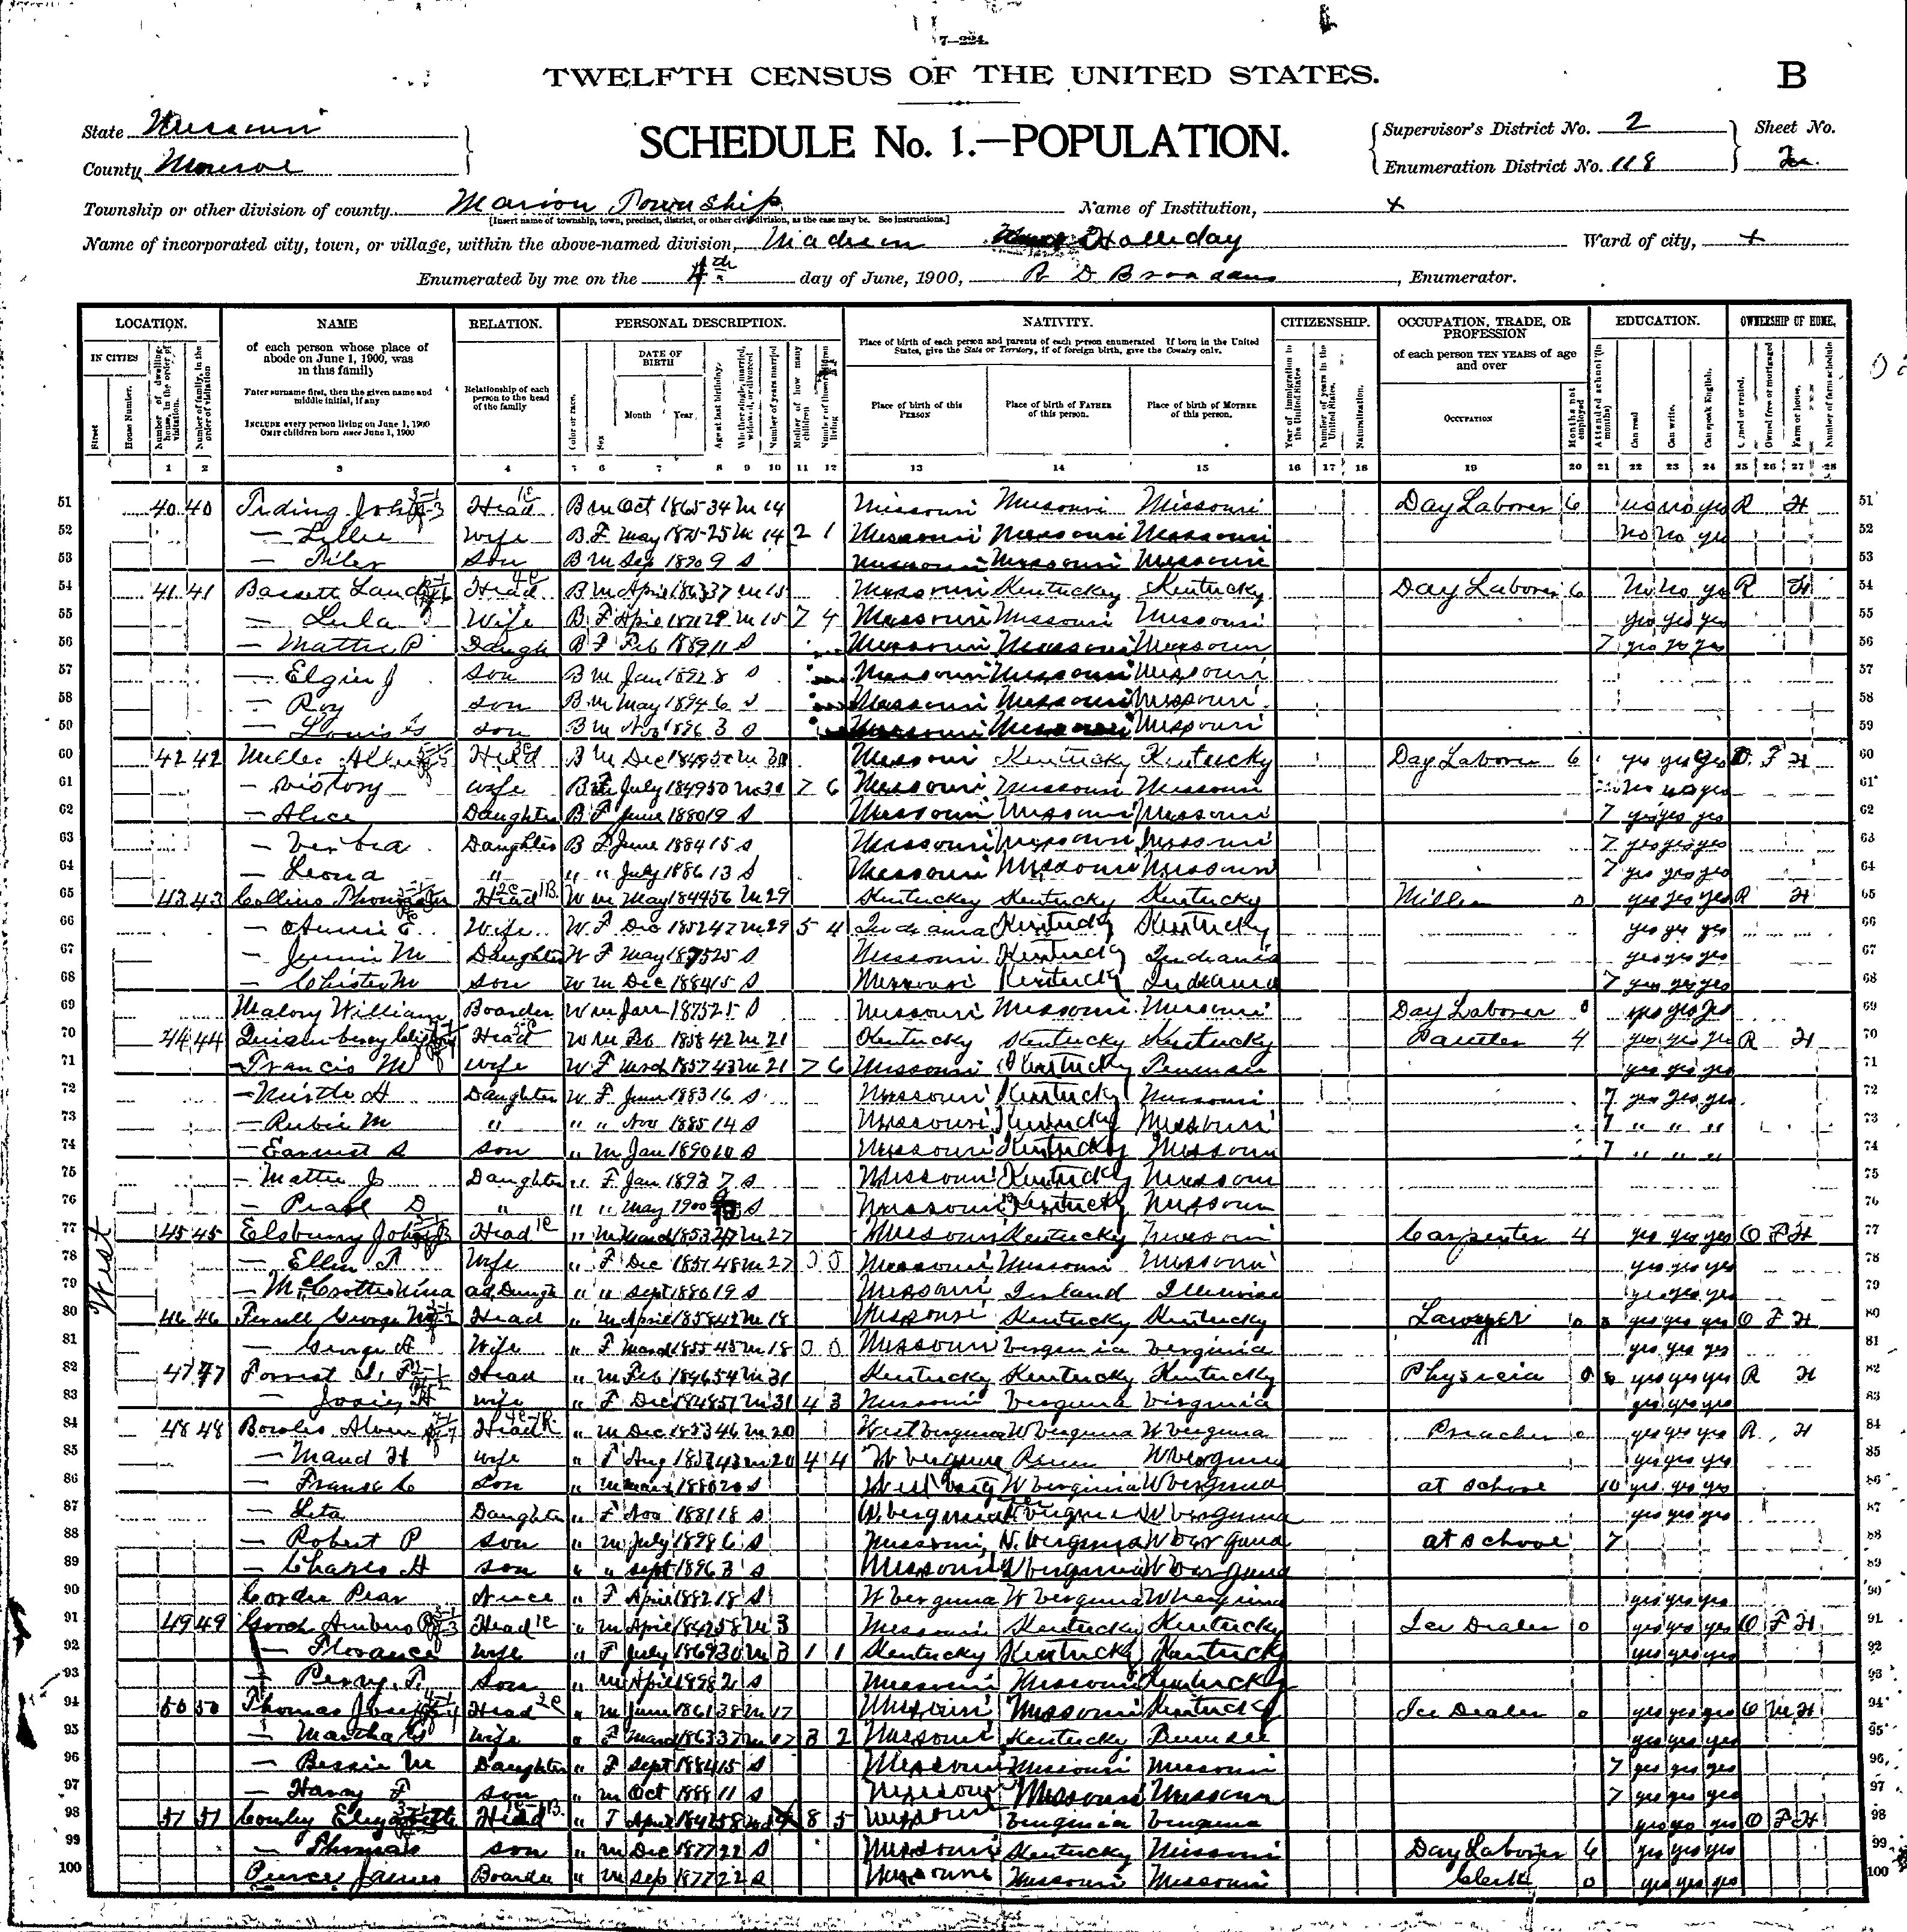 7—224.
TWELFTH CENSUS OF THE UNITED STATES.
B
State Missouri
County Monroe
SCHEDULE No. 1.—POPULATION.
Supervisor's District No. 2
Enumeration District No. 118
Sheet No.
Township or other division of county Marion Township
[Insert name of township, town, precinct, district, or other civil division, as the case may be. See instructions.]
Name of Institution, x
Name of incorporated city, town, or village, within the above-named division, Madison Holliday
Ward of city, x
Enumerated by me on the 4th day of June, 1900, R D Broadaus, Enumerator.
LOCATION. NAME RELATION. PERSONAL DESCRIPTION. NATIVITY. CITIZENSHIP. OCCUPATION, TRADE, OR PROFESSION EDUCATION. OWNERSHIP OF HOME.
IN CITIES
Street
House Number.
Number of dwelling-house, in the order of visitation.
Number of family, in the order of visitation
of each person whose place of abode on June 1, 1900, was in this family
Enter surname first, then the given name and middle initial, if any
INCLUDE every person living on June 1, 1900
OMIT children born since June 1, 1900
Relationship of each person to the head of the family
Color or race.
Sex
DATE OF BIRTH
Month Year
Age at last birthday.
Whether single, married, widowed, or divorced
Number of years married
Mother of how many children
Number of these children living
Place of birth of each person and parents of each person enumerated If born in the United States, give the State or Territory, if of foreign birth, give the Country only.
Place of birth of this PERSON
Place of birth of FATHER of this person.
Place of birth of MOTHER of this person.
Year of immigration to the United States
Number of years in the United States.
Naturalization.
of each person TEN YEARS of age and over
OCCUPATION
Months not employed
Attended school (in months)
Can read
Can write.
Can speak English.
Owned or rented.
Owned free or mortgaged
Farm or house.
Number of farm schedule
1 2 3 4 5 6 7 8 9 10 11 12 13 14 15 16 17 18 19 20 21 22 23 24 25 26 27 28
51 40 40 Head B M Oct 1865 34 M 14 Missouri Missouri Missouri Day Laborer 6 no no yes R H 51
52 — Lillie wife B F May 1875 25 M 14 2 1 Missouri Missouri Missouri No No yes 52
53 — son B M Sep 1890 9 S Missouri Missouri Missouri 53
54 41 41 Bassett Head B M April 1863 37 M 15 Missouri Kentucky Kentucky Day Laborer 6 No No yes R H 54
55 — Lula Wife B F April 1871 29 M 15 7 4 Missouri Missouri Missouri yes yes yes 55
56 — Mattie P Daugh B F Feb 1889 11 S Missouri Missouri Missouri 7 yes yes yes 56
57 — Elgie J son B M Jan 1892 8 S Missouri Missouri Missouri 57
58 — Roy son B M May 1894 6 S Missouri Missouri Missouri 58
59 — Louis son B M Nov 1896 3 S Missouri Missouri Missouri 59
60 42 42 Miller Head B M Dec 1849 50 M 30 Missouri Kentucky Kentucky Day Laborer 6 yes yes yes O F H 60
61 — Victory wife B F July 1849 50 M 30 7 6 Missouri Missouri Missouri No no yes 61
62 — Alice Daughter B F June 1880 19 S Missouri Missouri Missouri 7 yes yes yes 62
63 — Daughter B F June 1884 15 S Missouri Missouri Missouri 7 yes yes yes 63
64 — Leona " " " July 1886 13 S Missouri Missouri Missouri 7 yes yes yes 64
65 43 43 Collins Head W M May 1844 56 M 29 Kentucky Kentucky Kentucky Miller 0 yes yes yes R H 65
66 — E. Wife W F Dec 1852 47 M 29 5 4 Indiana Kentucky Kentucky yes yes yes 66
67 — Jennie M Daughter W F May 1875 25 S Missouri Kentucky Indiana yes yes yes 67
68 — Chister M son W M Dec 1884 15 S Missouri Kentucky Indiana 7 yes yes yes 68
69 Malory William Boarder W M Jan 1875 25 S Missouri Missouri Missouri Day Laborer 0 yes yes yes 69
70 44 44 Quisenberry Head W M Feb 1858 42 M 21 Kentucky Kentucky Kentucky Painter 4 yes yes yes R H 70
71 — Francis M wife W F March 1857 43 M 21 7 6 Missouri Kentucky yes yes yes 71
72 — Mirtle H Daughter W F June 1883 16 S Missouri Kentucky Missouri 7 yes yes yes 72
73 — Rubie M " " " Nov 1885 14 S Missouri Kentucky Missouri 7 " " " 73
74 — Earnest S son " M Jan 1890 10 S Missouri Kentucky Missouri 7 " " " 74
75 — Mattie J Daughter " F Jan 1893 7 S Missouri Kentucky Missouri 75
76 — Pearl D " " " May 1900 S Missouri Kentucky Missouri 76
West
77 45 45 Elsbury John Head " M March 1853 47 M 27 Missouri Kentucky Missouri Carpenter 4 yes yes yes O F H 77
78 — Ellen Wife " F Dec 1851 48 M 27 0 0 Missouri Missouri Missouri yes yes yes 78
79 — Nina ad Daugh " " Sept 1880 19 S Missouri Ireland Illinois yes yes yes 79
80 46 46 Ferrell George Head " M April 1858 42 M 18 Missouri Kentucky Kentucky Lawyer 0 yes yes yes O F H 80
81 — George A Wife " F March 1855 45 M 18 0 0 Missouri Verginia Verginia yes yes yes 81
82 47 47 Forrest Head " M Feb 1846 54 M 31 Kentucky Kentucky Kentucky Physicia 0 yes yes yes R H 82
83 — Josie H wife " F Dec 1848 51 M 31 4 3 Missouri Verginia Virginia yes yes yes 83
84 48 48 Bowles Head " M Dec 1853 46 M 20 West Verginia W Verginia W Verginia Preacher 0 yes yes yes R H 84
85 — Maud H wife " F Aug 1857 43 M 20 4 4 W Verginia Penn W Verginia yes yes yes 85
86 — son " M March 1880 20 S West Verg W Verginia W Verginia at school 10 yes yes yes 86
87 — Leta Daughter " F Nov 1881 18 S W. Verginia W Verginia W Verginia yes yes yes 87
88 — Robert P son " M July 1893 6 S Missouri W. Verginia W Verginia at school 7 88
89 — Charles H son " " Sept 1896 3 S Missouri W Verginia W Verginia 89
90 Niece " F April 1882 18 S W Verginia W Verginia W Verginia yes yes yes 90
91 49 49 Head " M April 1842 58 M 3 Missouri Kentucky Kentucky Ice Dealer 0 yes yes yes O F H 91
92 — Florance wife " F July 1869 30 M 3 1 1 Kentucky Kentucky Kentucky yes yes yes 92
93 — Perry son " M April 1898 2 S Missouri Missouri Kentucky 93
94 50 50 Thomas Head " M June 1861 38 M 17 Missouri Missouri Kentucky Ice Dealer 0 yes yes yes O M H 94
95 — Martha Wife " F March 1863 37 M 17 3 2 Missouri Kentucky yes yes yes 95
96 — Bessie M Daughter " F Sept 1884 15 S Missouri Missouri Missouri 7 yes yes yes 96
97 — Harry F son " M Oct 1888 11 S Missouri Missouri Missouri 7 yes yes yes 97
98 51 51 Conley Head " F April 1842 58 8 5 Missouri Verginia Verginia yes yes yes O F H 98
99 — Thomas son " M Dec 1877 22 S Missouri Kentucky Missouri Day Laborer 6 yes yes yes 99
100 Pierce James Boarder " M Sep 1877 22 S Missouri Missouri Missouri Clerk 0 yes yes yes 100